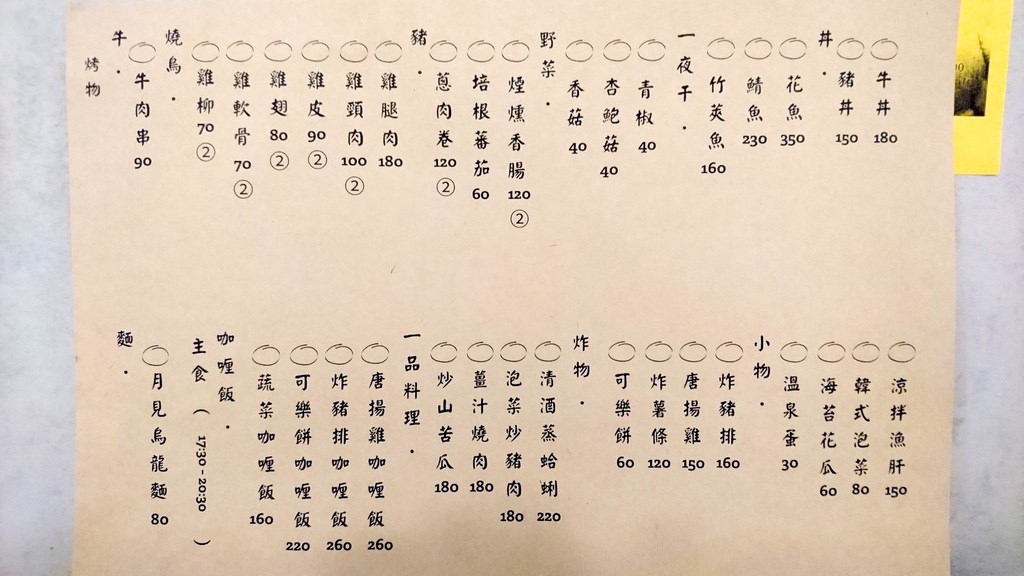 烤物
牛·
牛肉串 90
燒鳥·
雞柳 70 ②
雞軟骨 70 ②
雞翅 80 ②
雞皮 90 ②
雞頸肉 100 ②
雞腿肉 180
豬·
蔥肉卷 120 ②
培根蕃茄 60
煙燻香腸 120 ②
野菜·
香菇 40
杏鮑菇 40
青椒 40
一夜干·
竹莢魚 160
鯖魚 230
花魚 350
丼·
豬丼 150
牛丼 180
麵·
月見烏龍麵 80
主食(17:30-20:30)
咖喱飯·
蔬菜咖喱飯 160
可樂餅咖喱飯 220
炸豬排咖喱飯 260
唐揚雞咖喱飯 260
一品料理·
炒山苦瓜 180
薑汁燒肉 180
泡菜炒豬肉 180
清酒蒸蛤蜊 220
炸物·
可樂餅 60
炸薯條 120
唐揚雞 150
炸豬排 160
小物·
溫泉蛋 30
海苔花瓜 60
韓式泡菜 80
涼拌漁肝 150